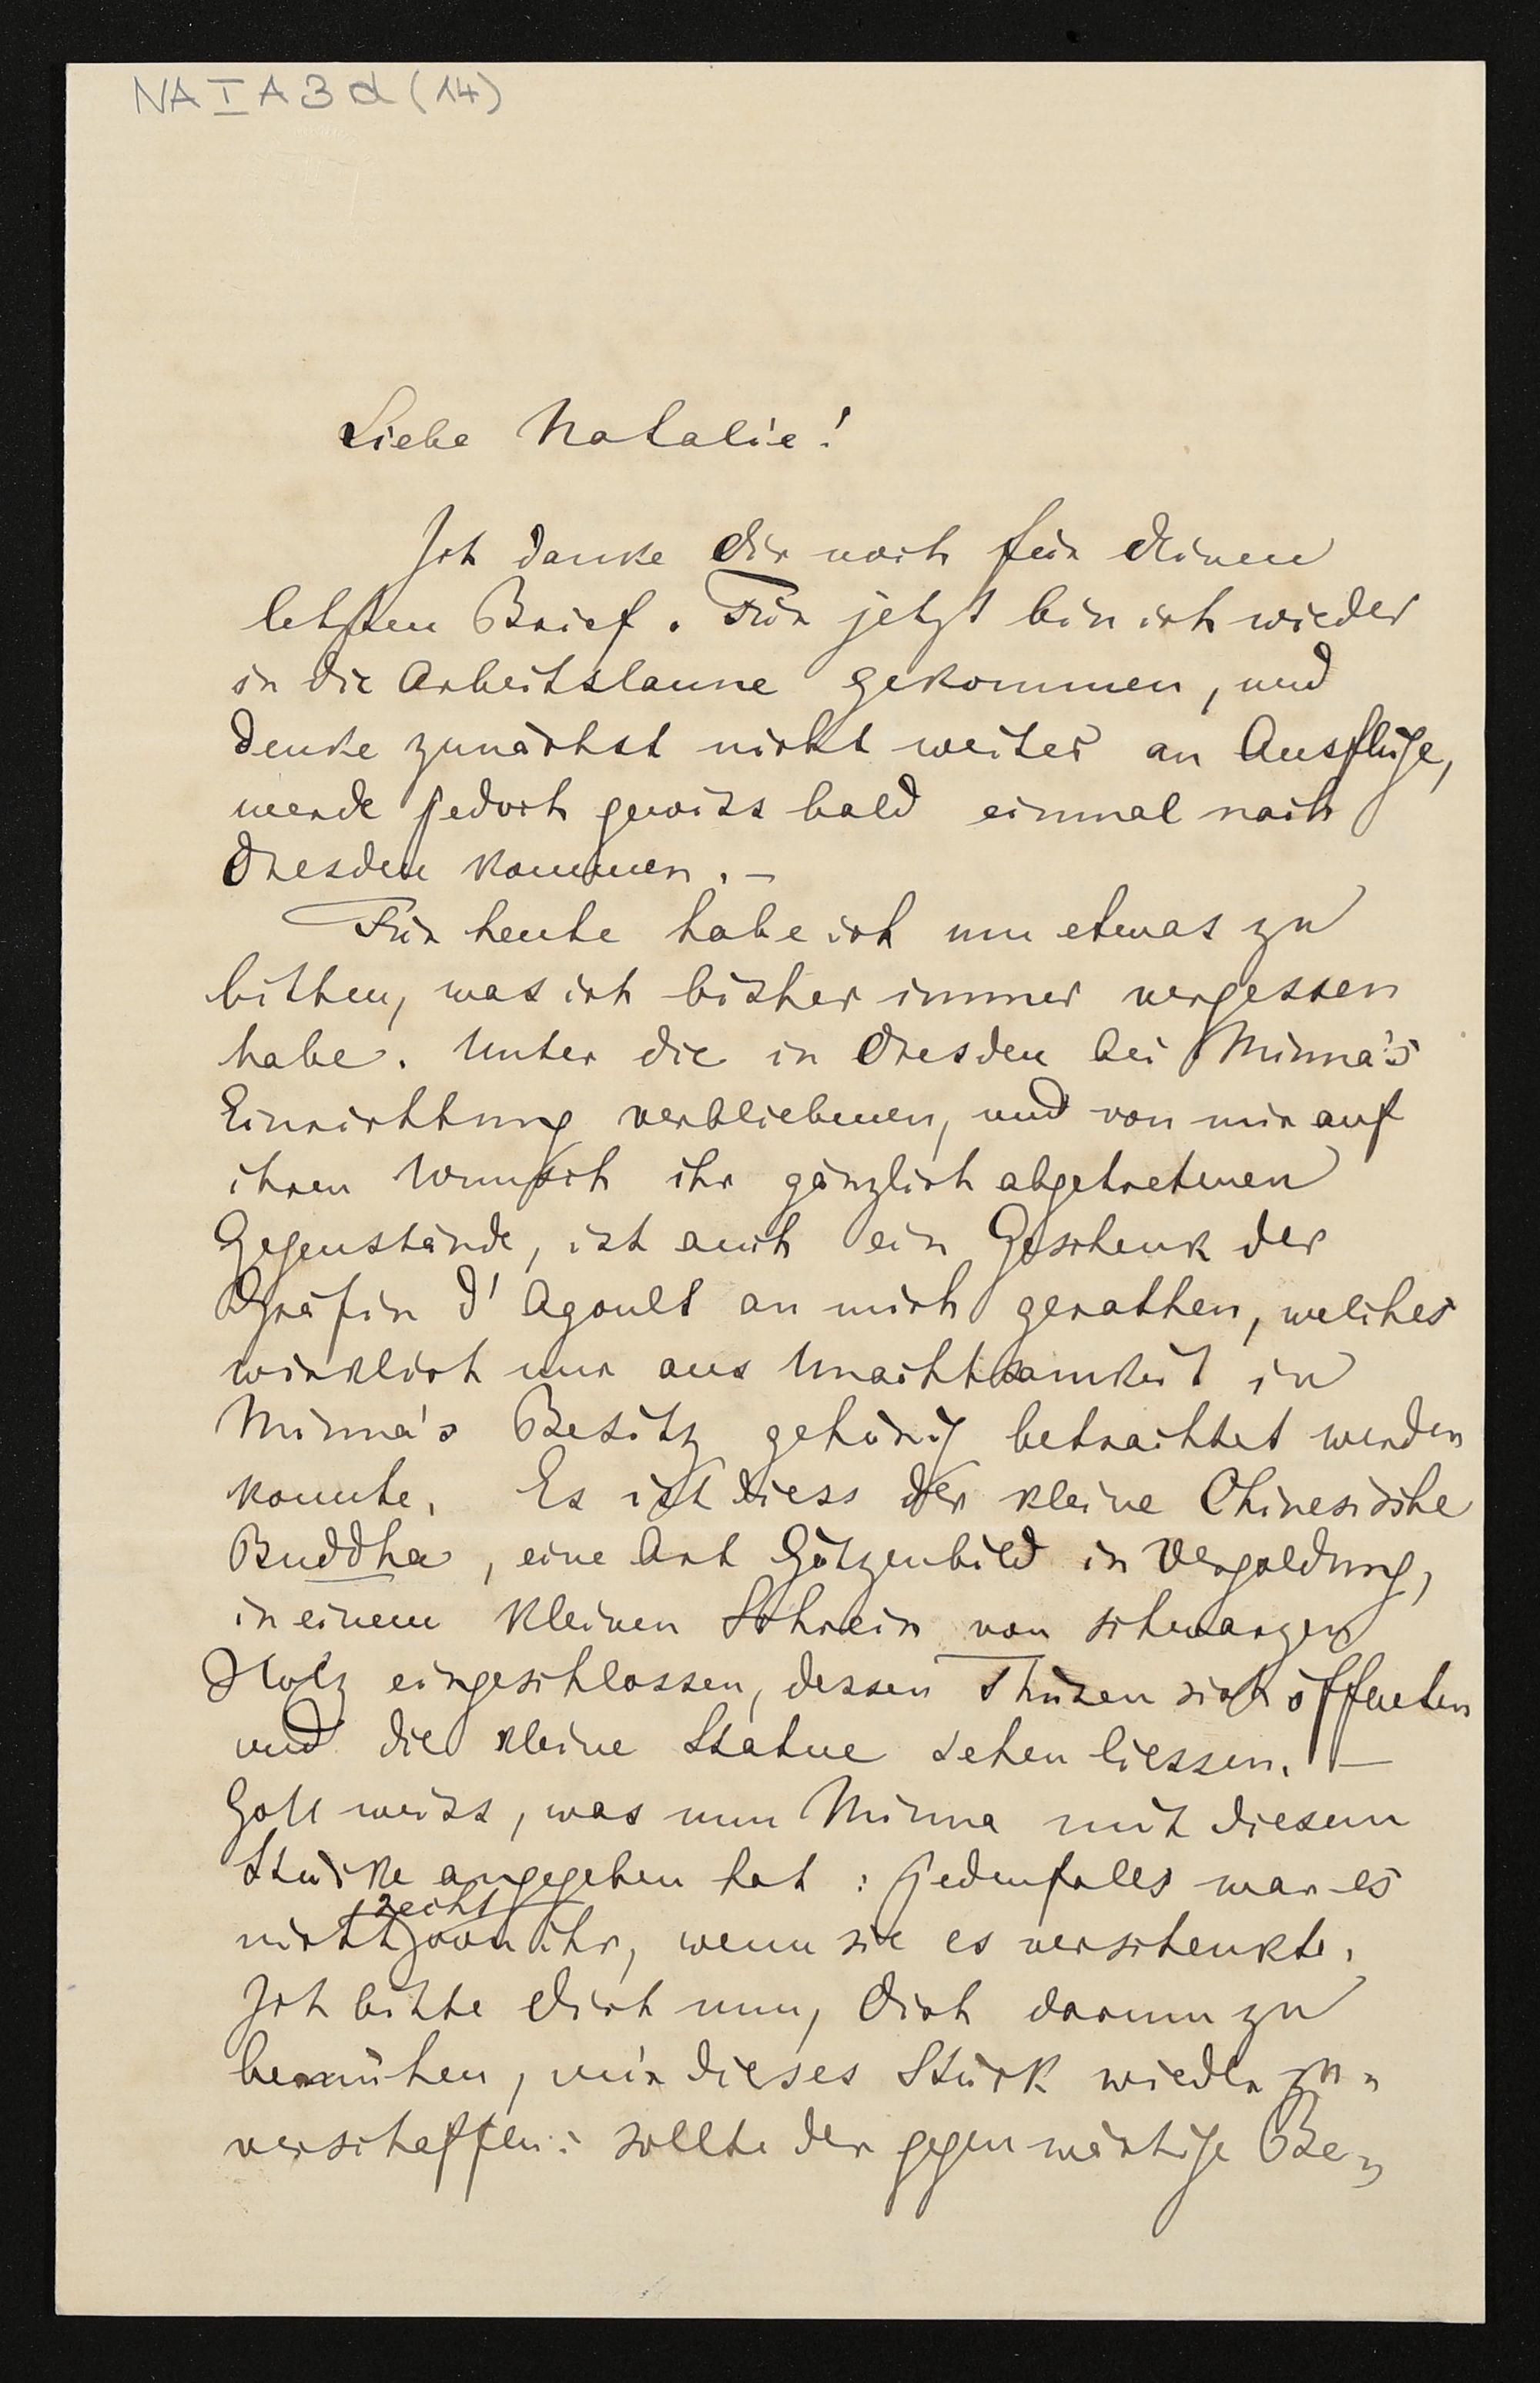 NA I A 3 d (14)
Liebe Natalie!
Ich danke Dir noch für Deinen
letzten Brief. Für jetzt bin ich wieder
in die Arbeitslaune gekommen, und
denke zunächst nicht weiter an Ausflüge,
werde jedoch gewiss bald einmal nach
Dresden kommen. –
Für heute habe ich um etwas zu
bitten, was ich bisher immer vergessen
habe. Unter die in Dresden bei Minna's
Einrichtung verbliebenen, und von mir auf
ihren Wunsch ihr gänzlich abgetretenen
Gegenstände, ist auch ein Geschenk der
Gräfin d'Agoult an mich gerathen, welches
wirklich nur aus Unachtsamkeit in
Minna's Besitz gehörig betrachtet werden
konnte. Es ist diess der kleine Chinesische
Buddha, eine Art Götzenbild in Vergoldung,
in einem kleinen Schrein von schwarzen
Holz eingeschlossen, dessen Thüren sich öffneten
und die kleine Statue sehen liessen. –
Gott weiss, was nun Minna mit diesem
Stücke angegeben hat: jedenfalls war es
nicht recht von ihr, wenn sie es verschenkte.
Ich bitte Dich nun, Dich darum zu
bemühen, mir dieses Stück wieder zu-
verschaffen: sollte der gegenwärtige Be-